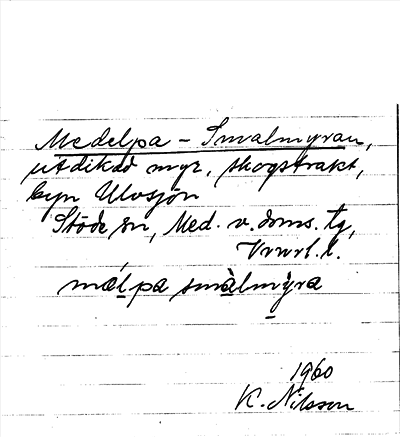 Medelpa - Smalmyran,
utdikad myr, skogstrakt,
byn Ulvsjön
Stöde sn, Med. v. doms. tg,
Vrnrl. l.
mælpa smàlmýra
1960
K. Nilsson